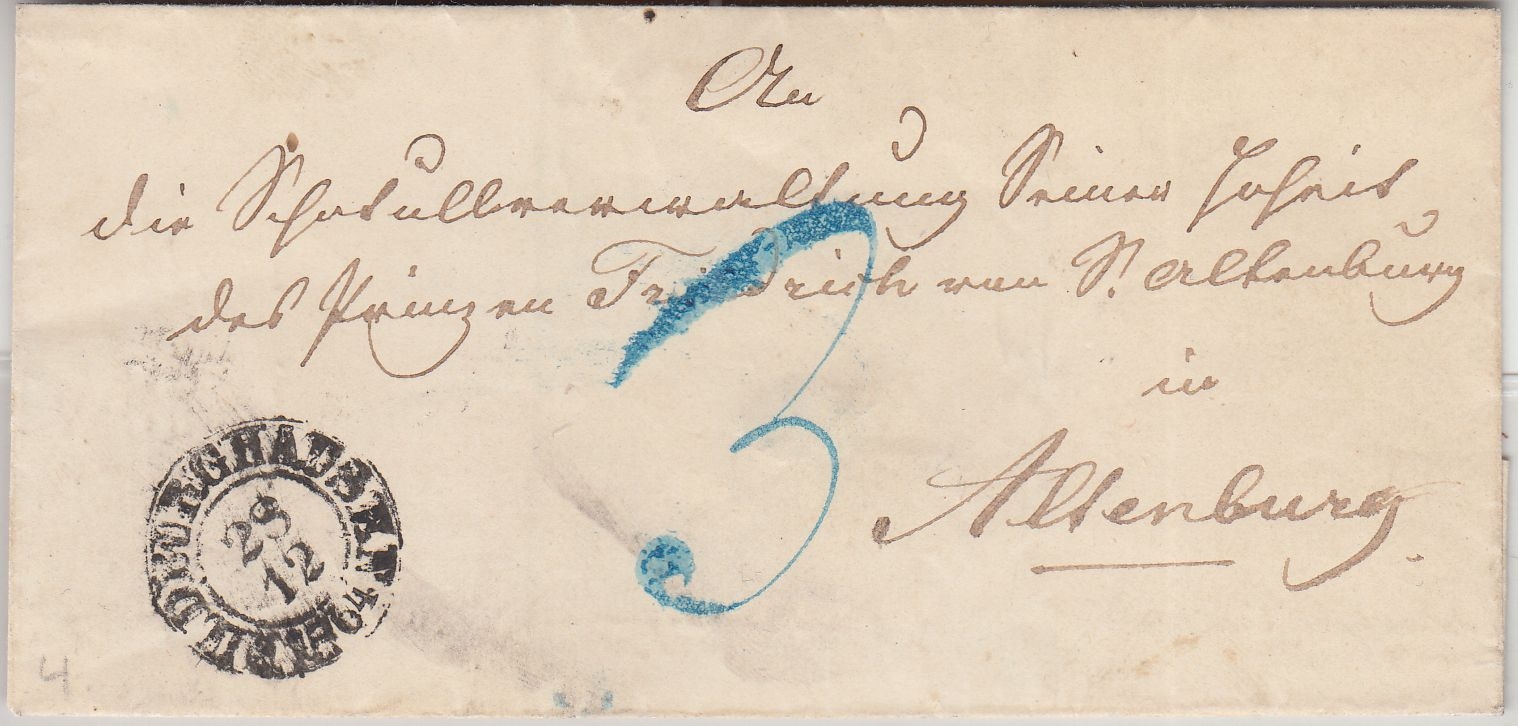 An
die Schatullverwaltung Seiner Hoheit
des Prinzen Friedrich von S. Altenburg
in
Altenburg
3
HILDBURGHAUSEN
28
12
4